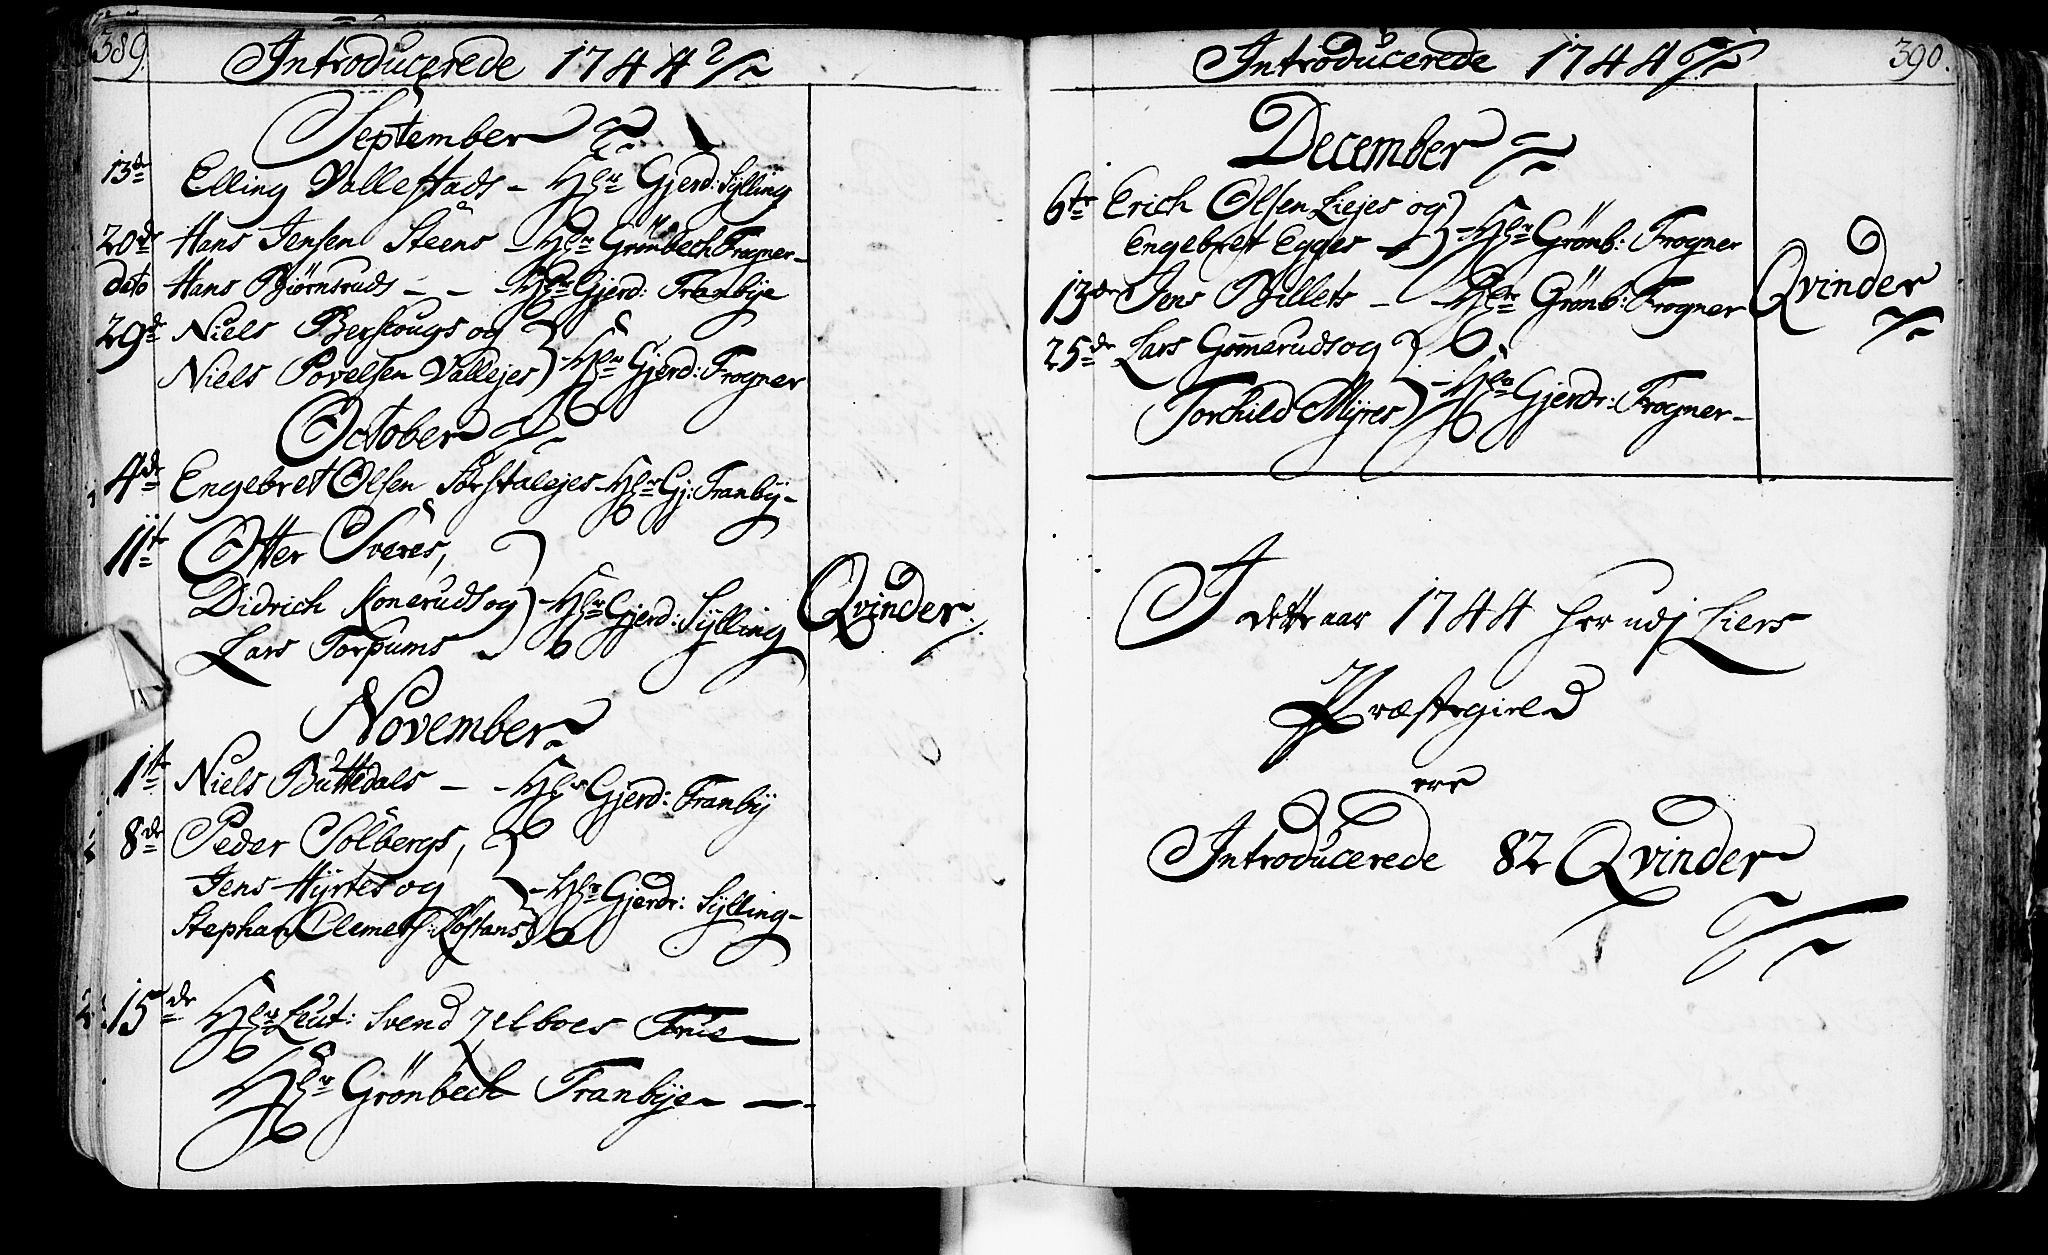 389.
Introducerede 1744
September
13de Elling Vallestads - Hr Gjerd: Sylling
20de Hans Jensen Steens - Hr Grönbech Frogner -
dato Hans Biörnsruds - - Hr Gjerd: Franbye
29de Niels Berscougs og
Niels Povelsen Vallejes - Hr Gjerd: Frogner
October
4de Engebret Olsen Sørstalejes - Hr Gj: Franby -
11te Otter Sveres,
Didrich Koneruds og - Hr Gjerd: Sylling
Lars Torpums
Qvinder
November
1te Niels Buttedals - - Hr Gjerd: Franbÿ
8de Peder Solbergs,
Jens Hÿrtes og - Hr Gjerdr: Sÿlling -
Stephan Clemets: Kostans
15de Hr Leut: Svend Zelboes Frue
Hr Grönbech Franbÿe -
390.
Introducerede 1744
December
6te Erich Olsen Liejes og
Engebret Egges - Hr Grönb: Frogner
13de Jens Billets - Hr Grönb: Frogner
Qvinder
25de Lars Gomeruds og
Torchild Myres - Hr Gjerdr: Frogner -
I dette aar 1744 her udj Liers
Præstegield
ere
Introducerede 82 Qvinder